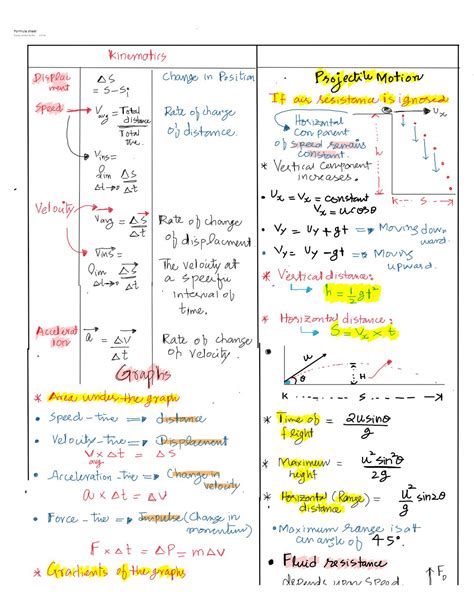 Formula sheet
Kinematics
Displac
ment
ΔS
= S - Si
Change in Position
Speed
Vavg = Total distance
Total time
Rate of change
of distance.
Vins =
lim ΔS
Δt→0 Δt
Velocity
Vavg = ΔS
Δt
Rate of change
of displacment.
Vins =
lim ΔS
Δt→0 Δt
The velocity at
a specific
interval of
time.
Accelerat
ion
a = ΔV
Δt
Rate of change
of velocity.
Graphs
* Area under the graph
• Speed - time ⇒ distance
• Velocity - time ⇒ Displacement
Vavg × Δt = ΔS
• Acceleration - time ⇒ Change in
velocity
a × Δt = ΔV
• Force - time ⇒ Impulse (Change in
momentum)
F × Δt = ΔP = mΔV
* Gradients of the graphs
Projectile Motion
If air resistance is ignored
Horizontal
Component
of speed remains
constant.
* Vertical Component
increases.
Ux
K --- S --->
• Ux = Vx = constant
Vx = ucosθ
• Vy = Uy + gt ⇒ Moving down
ward.
• Vy = Uy - gt ⇒ Moving
upward.
* Vertical distance:
h = ½gt²
* Horizontal distance:
S = Vx × t
u
θ
H
K --- S --->
* Time of
flight
= 2usinθ
g
* Maximum
height
= u² sin²θ
2g
* Horizontal (Range)
distance
= u² sin2θ
g
• Maximum range is at
an angle of 45°.
• Fluid resistance
depends upon Speed.